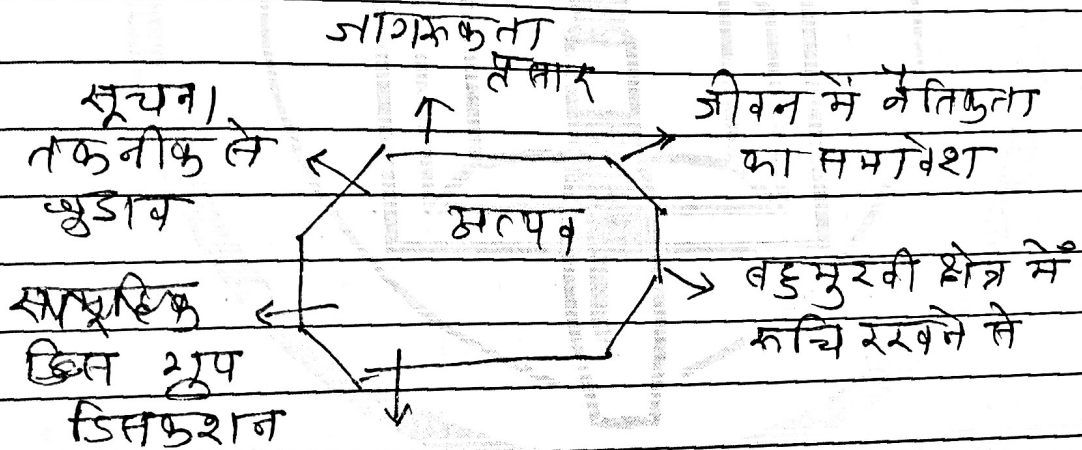 जागरूकता
प्रसार
सूचना
तकनीक से
जुडाव
जीवन में नैतिकता
का समावेश
बहुमुखी क्षेत्र में
रूचि रखने से
सामूहिक
ग्रुप
डिसकशन